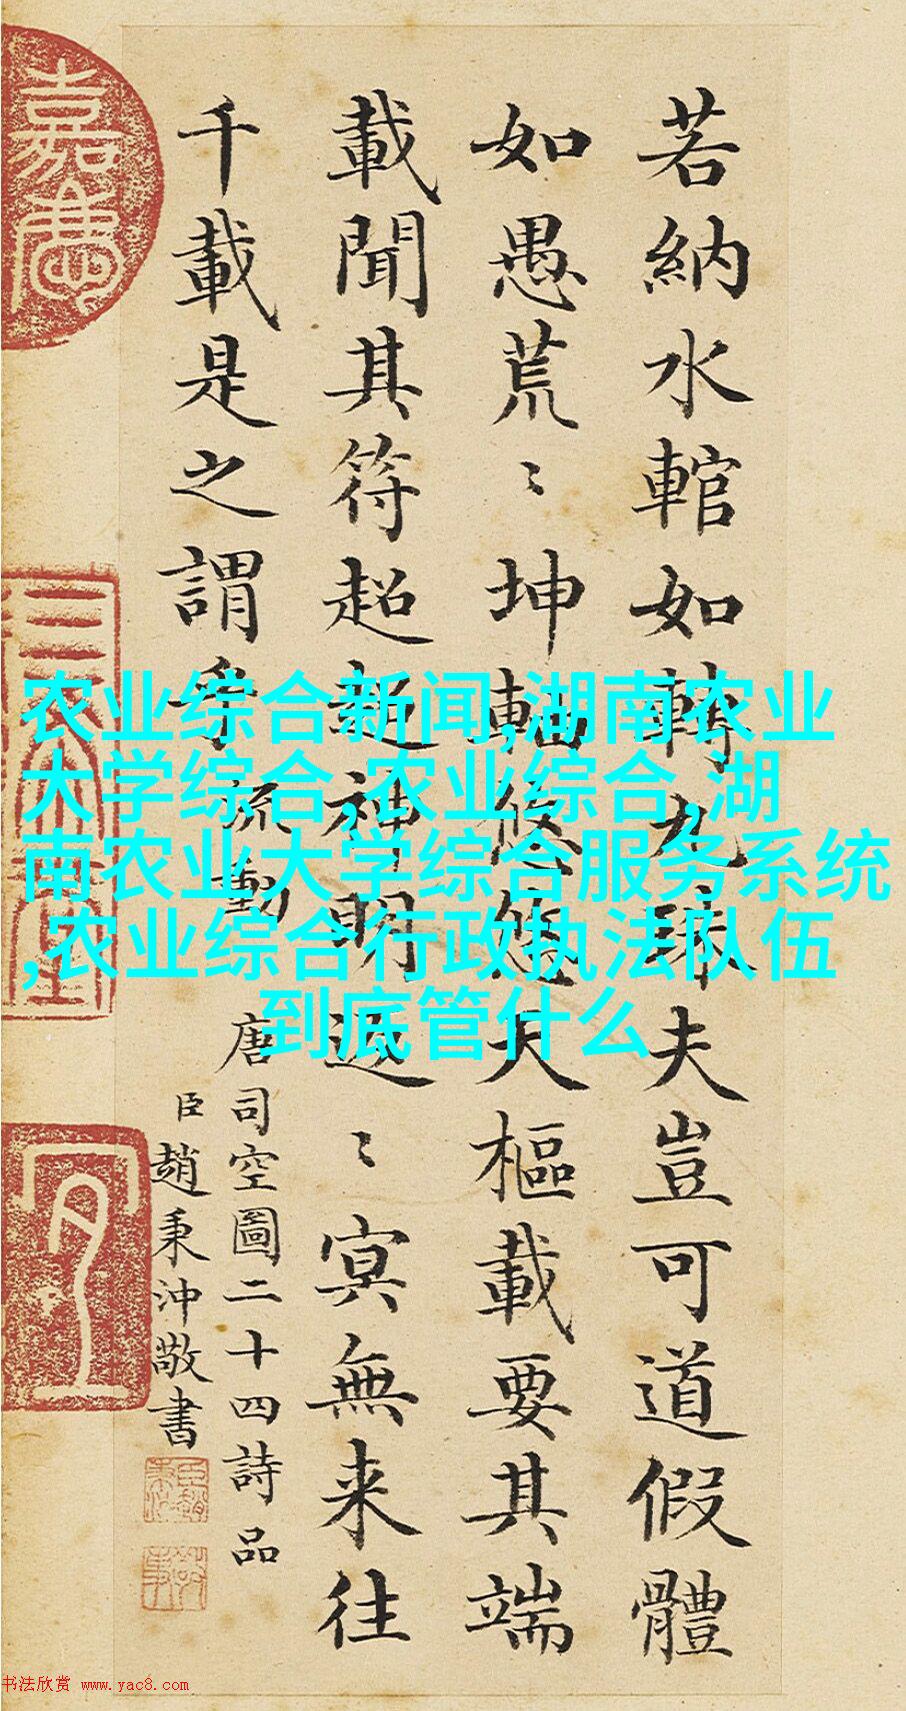 若納水輨如轉丸珠夫豈可道假體
如愚荒〻坤軸悠悠天樞載要其端
載聞其符超超神明返〻冥無来往
千載是之謂乎 流動
唐司空圖二十四詩品
臣趙秉沖敬書
嘉慶
农业综合新闻,湖南农业
大学综合,农业综合,湖
南农业大学综合服务系统
,农业综合行政执法队伍
到底管什么
书法欣赏 www.yac8.com